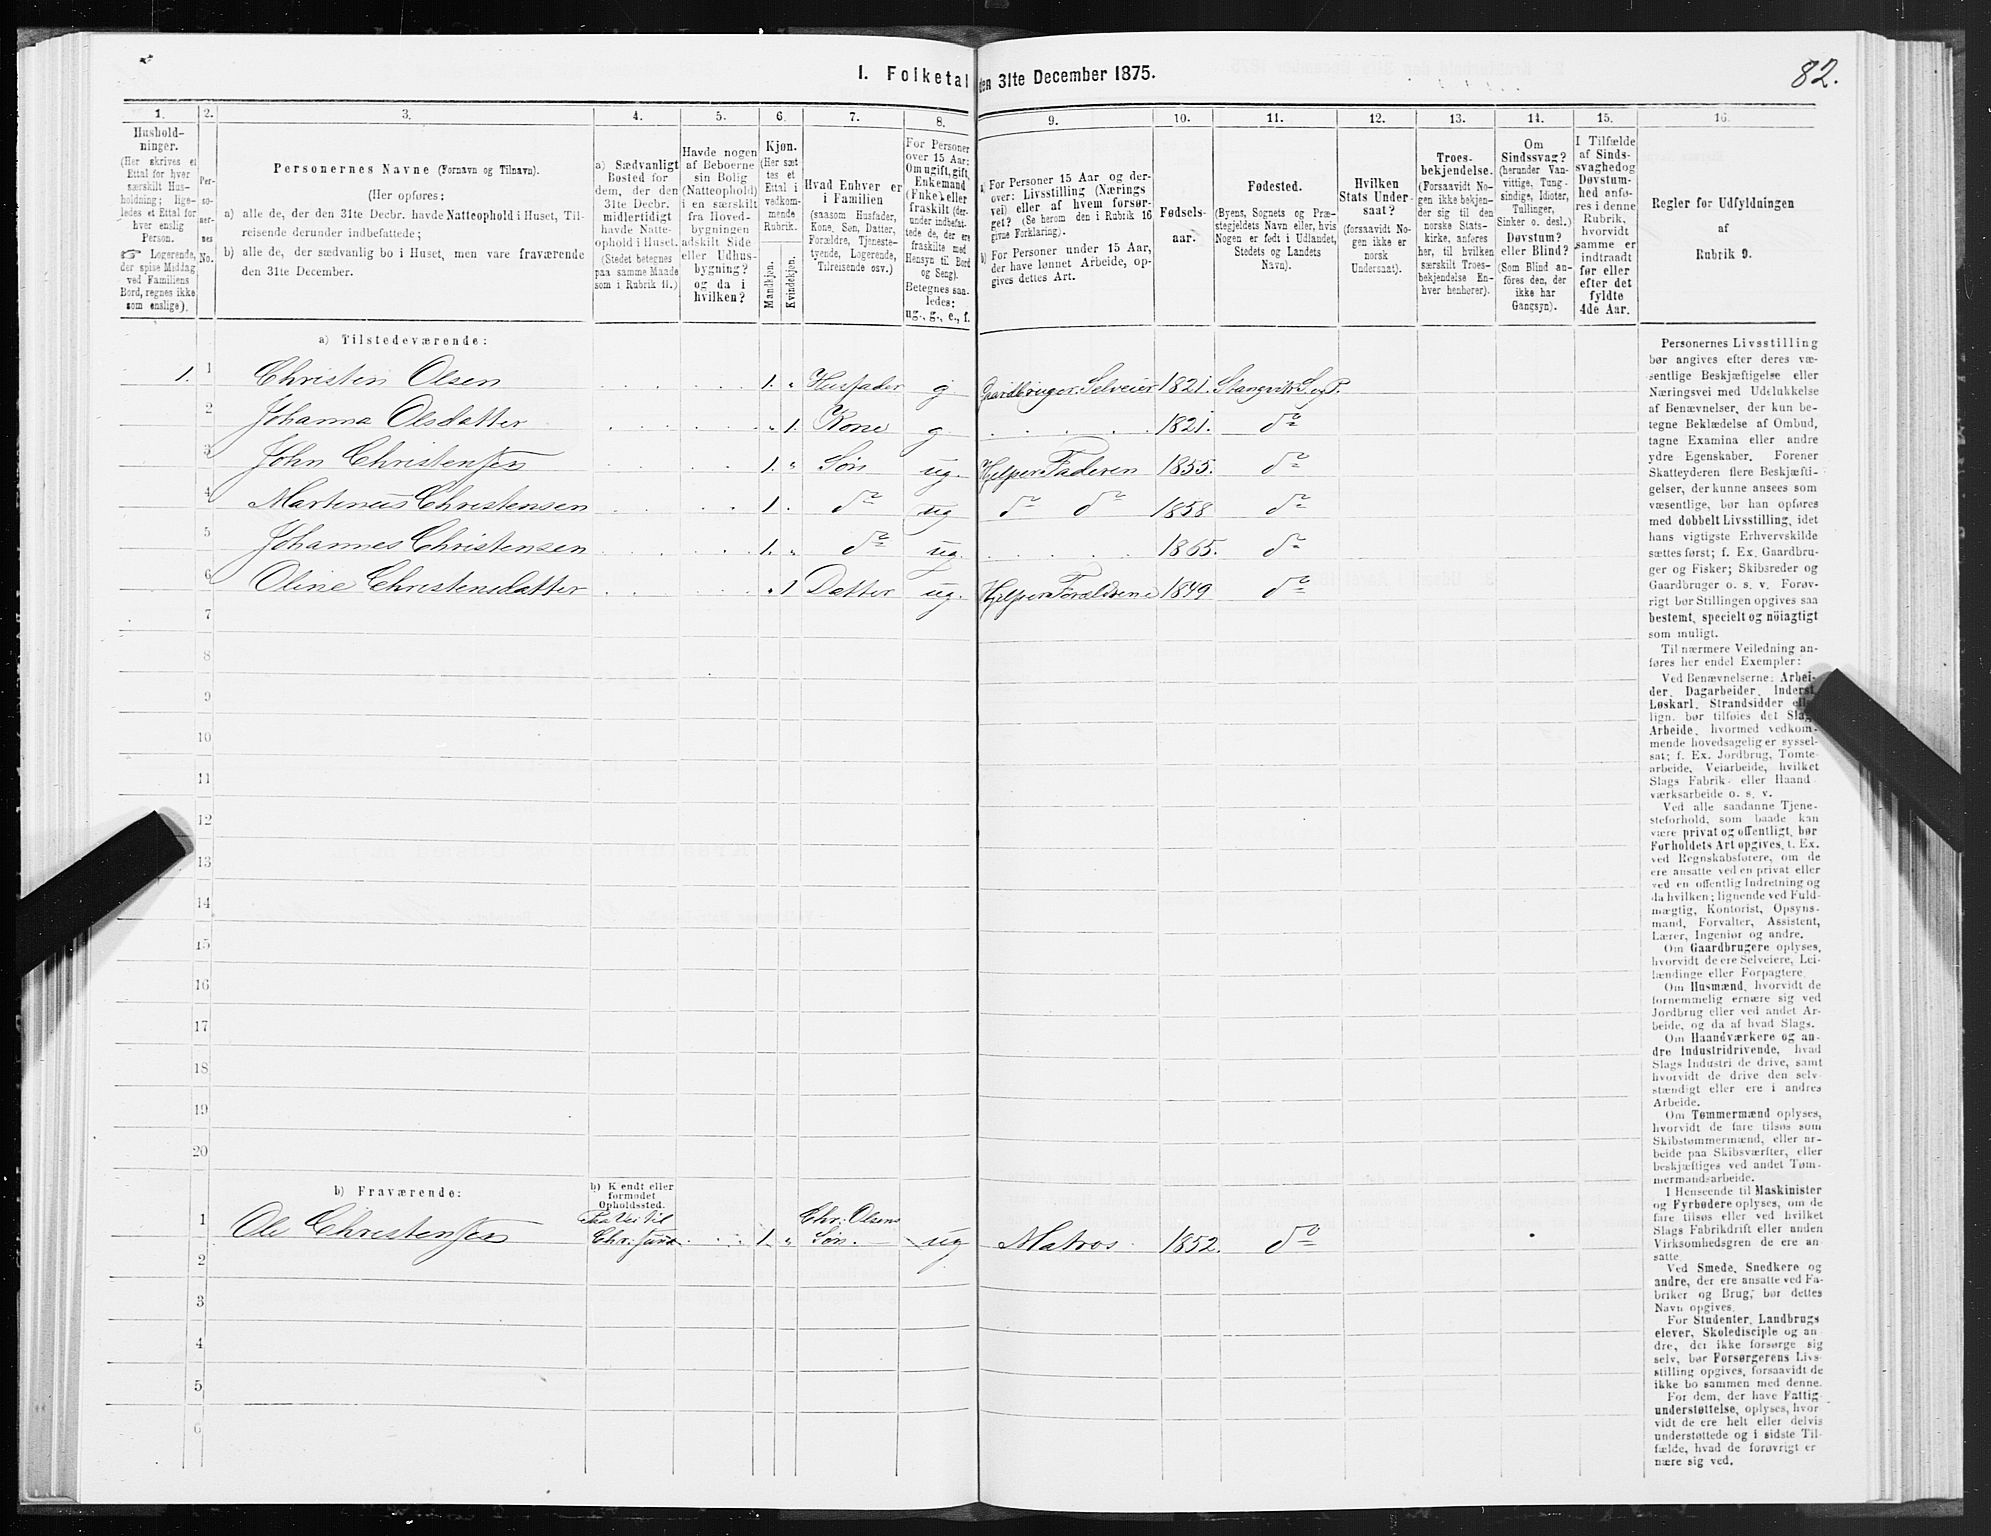 I. Folketal den 31te December 1875.
82.
1. 2. 3. 4. 5. 6. 7. 8. 9. 10. 11. 12. 13. 14. 15. 16.
Hushold-
ninger.
(Her skrives et
Ettal for hver
særskilt Hus-
holdning; lige-
ledes et Ettal for
hver enslig
Person.
☞ Logerende,
der spise Middag
ved Familiens
Bord, regnes ikke
som enslige).
Per-
so-
ner-
nes
No.
Personernes Navne (Fornavn og Tilnavn).
(Her opføres:
a) alle de, der den 31te Decbr. havde Natteophold i Huset, Til-
reisende derunder indbefattede;
b) alle de, der sædvanlig bo i Huset, men vare fraværende
den 31te December.
a) Sædvanligt
Bosted for
dem, der den
31te Decbr.
midlertidigt
havde Natte-
ophold i Huset.
(Stedet betegnes
paa samme Maade
som i Rubrik 11.)
Havde nogen
af Beboerne
sin Bolig
(Natteophold)
i en særskilt
fra Hoved-
bygningen
adskilt Side
eller Udhus-
bygning?
og da i
hvilken?
Kjøn.
(Her sæt
tes et
Ettal i
vedkom-
mende
Rubrik.
Mandkjøn.
Kvindekjøn.
Hvad Enhver er
i Familien
(saasom Husfader,
Kone, Søn, Datter,
Forældre, Tjeneste-
tyende, Logerende,
Tilreisende osv.)
For Personer
over 15 Aar:
Om ugift, gift,
Enkemand
(Enke) eller
fraskilt (der-
under indbefat-
tede de, der ere
fraskilte med
Hensyn til Bord
og Seng).
Betegnes saa-
ledes:
ug., g., e., f.
a) For Personer 15 Aar og der-
over: Livsstilling (Nærings
vei) eller af hvem forsør-
get? (Se herom den i Rubrik 16
givne Forklaring).
b) For Personer under 15 Aar,
der have lønnet Arbeide, op-
gives dettes Art.
Fødsels-
aar.
Fødested.
(Byens, Sognets og Præ-
stegjeldets Navn eller, hvis
Nogen er født i Udlandet,
Stedets og Landets
Navn).
Hvilken
Stats Under-
saat?
(forsaavidt No-
gen ikke er
norsk
Undersaat).
Troes-
bekjendelse.
(Forsaavidt No-
gen ikke bekjen-
der sig til den
norske Stats-
kirke, anføres
her, til hvilken
særskilt Troes-
bekjendelse En-
hver henhører).
Om
Sindssvag?
(herunder Van-
vittige, Tung-
sindige, Idioter,
Tullinger,
Sinker o. desl.)
Døvstum?
eller Blind?
(Som Blind an-
føres den, der
ikke har
Gangsyn).
I Tilfælde
af Sinds-
svaghed og
Døvstum-
hed anfø-
res i denne
Rubrik,
hvorvidt
samme er
indtraadt
før eller
efter det
fyldte
4de Aar.
Regler for Udfyldningen
af
Rubrik 9.
a) Tilstedeværende:
1. 1 Christen Olsen 1. Husfader g Gaardbruger. Selveier 1821. Stangvik S. og P.
2 Johanna Olsdatter 1. Kone g 1821. do
3 John Christensen 1. Søn ug. Hjelper Faderen 1855. do
4 Martinus Christensen 1. do ug do do 1858 do
5 Johannes Christensen 1. do ug. 1865. do
6 Oline Christensdatter 1 Datter ug. Hjelper Forældrene 1849 do
7
8
9
10
11
12
13
14
15
16
17
18
19
20
b) Fraværende:
b) Kjendt eller
formodet
Opholdssted.
1 Ole Christensen Paa Vei til Chr. sund 1. Chr. Olsens Søn. ug Matros. 1852. do
2
3
4
5
6
Personernes Livsstilling
bør angives efter deres væ-
sentlige Beskjæftigelse eller
Næringsvei med Udelukkelse
af Benævnelser, der kun be-
tegne Beklædelse af Ombud,
tagne Examina eller andre
ydre Egenskaber. Forener
Skatteyderen flere Beskjæfti-
gelser, der kunne ansees som
væsentlige, bør han opføres
med dobbelt Livsstilling, idet
hans vigtigste Erhvervskilde
sættes først; f. Ex. Gaardbru-
ger og Fisker; Skibsreder og
Gaardbruger o. s. v. Forøv-
rigt bør Stillingen opgives saa
bestemt, specielt og nöiagtigt
som muligt.
Til nærmere Veiledning an-
føres her endel Exempler:
Ved Benævnelserne: Arbei-
der, Dagarbeider, Inderst,
Løskarl, Strandsidder
lign. bør tilføies det Slags
Arbeide, hvormed vedkom-
mende hovedsagelig er syssel-
sat; f. Ex. Jordbrug, Tomte-
arbeide, Veiarbeide, hvilket
Slags Fabrik- eller Haand
værksarbeide o. s. v.
Ved alle saadanne Tjene-
steforhold, som baade kan
være privat og offentligt, bør
Forholdets Art opgives, f. Ex.
ved Regnskabsførere, om de
ere ansatte ved en privat eller
ved en offentlig Indretning og
da hvilken; lignende ved Fuld-
mægtig, Kontorist, Opsyns-
mand, Forvalter, Assistent,
Lærer, Ingeniør og andre.
Om Gaardbrugere oplyses,
hvorvidt de ere Selveiere, Lei-
lændinge eller Forpagtere.
Om Husmænd, hvorvidt de
fornemmelig ernære sig ved
Jordbrug eller ved andet Ar-
beide, og da af hvad Slags.
Om Haandværkere og an-
dre Industridrivende, hvad
Slags Industri de drive, samt
hvorvidt de drive den selv-
stændigt eller ere i andres
Arbeide.
Om Tømmermænd oplyses,
hvorvidt de fare tilsøs som
Skibstømmermænd, eller ar-
beide paa Skibsværfter, eller
beskjæftiges ved andet Tøm-
mermandsarbeide.
I Henseende til Maskinister
og Fyrbødere oplyses, om de
fare tilsøs eller ved hvilket
Slags Fabrikdrift eller anden
Virksomhedsgren de ere an-
satte.
Ved Smede, Snedkere og
andre, der ere ansatte ved Fa-
briker og Brug, bør dettes
Navn opgives.
For Studenter, Landbrugs
elever, Skoledisciple og an
dre, der ikke forsørge sig
selv, bør Forsørgerens Livs-
stilling opgives, forsaavidt de
ikke bo sammen med denne.
For dem, der have Fattig-
understøttelse, oplyses, hvor
vidt de ere helt eller delvis
understøttede og i sidste Til-
fælde, hvad de forøvrigt er
nære sig ved.